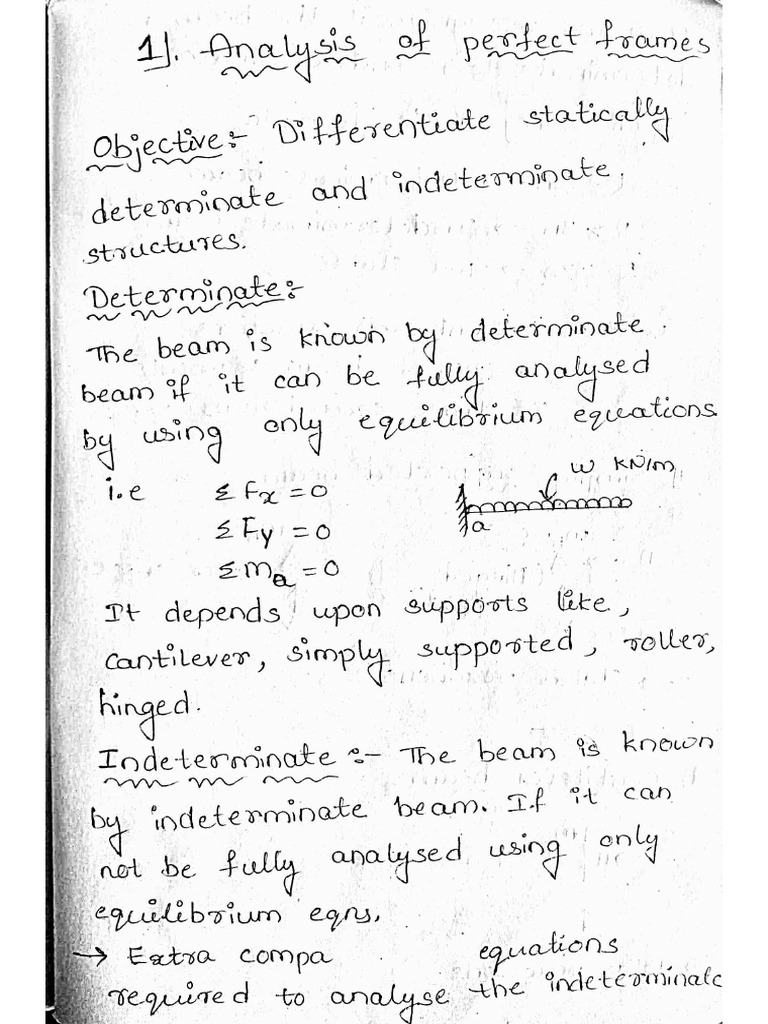 1). Analysis of perfect frames
Objective:- Differentiate statically
determinate and indeterminate.
structures.
Determinate:-
The beam is known by determinate.
beam if it can be fully analysed
by using only equilibrium equations
i.e Σ Fx = 0
w KN/m
Σ Fy = 0
a
Σ Ma = 0
It depends upon supports like,
cantilever, simply supported, roller,
hinged.
Indeterminate :- The beam is known
by indeterminate beam. If it can
not be fully analysed using only
equilibrium eqns.
→ Extra compa equations
required to analyse the indeterminate